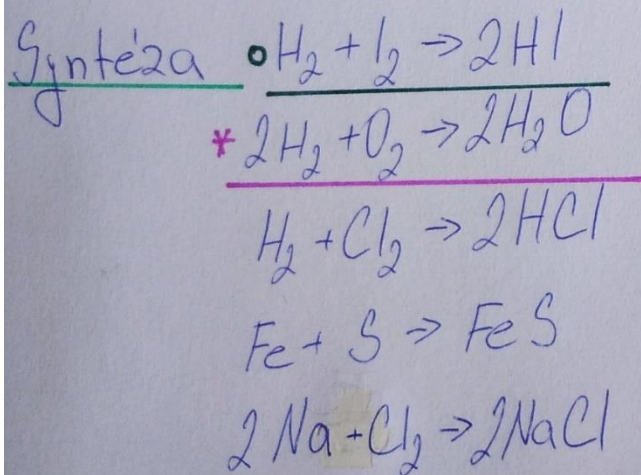 Syntéza • H₂ + I₂ → 2HI
* 2H₂ + O₂ → 2H₂O
H₂ + Cl₂ → 2HCl
Fe + S → FeS
2Na + Cl₂ → 2NaCl